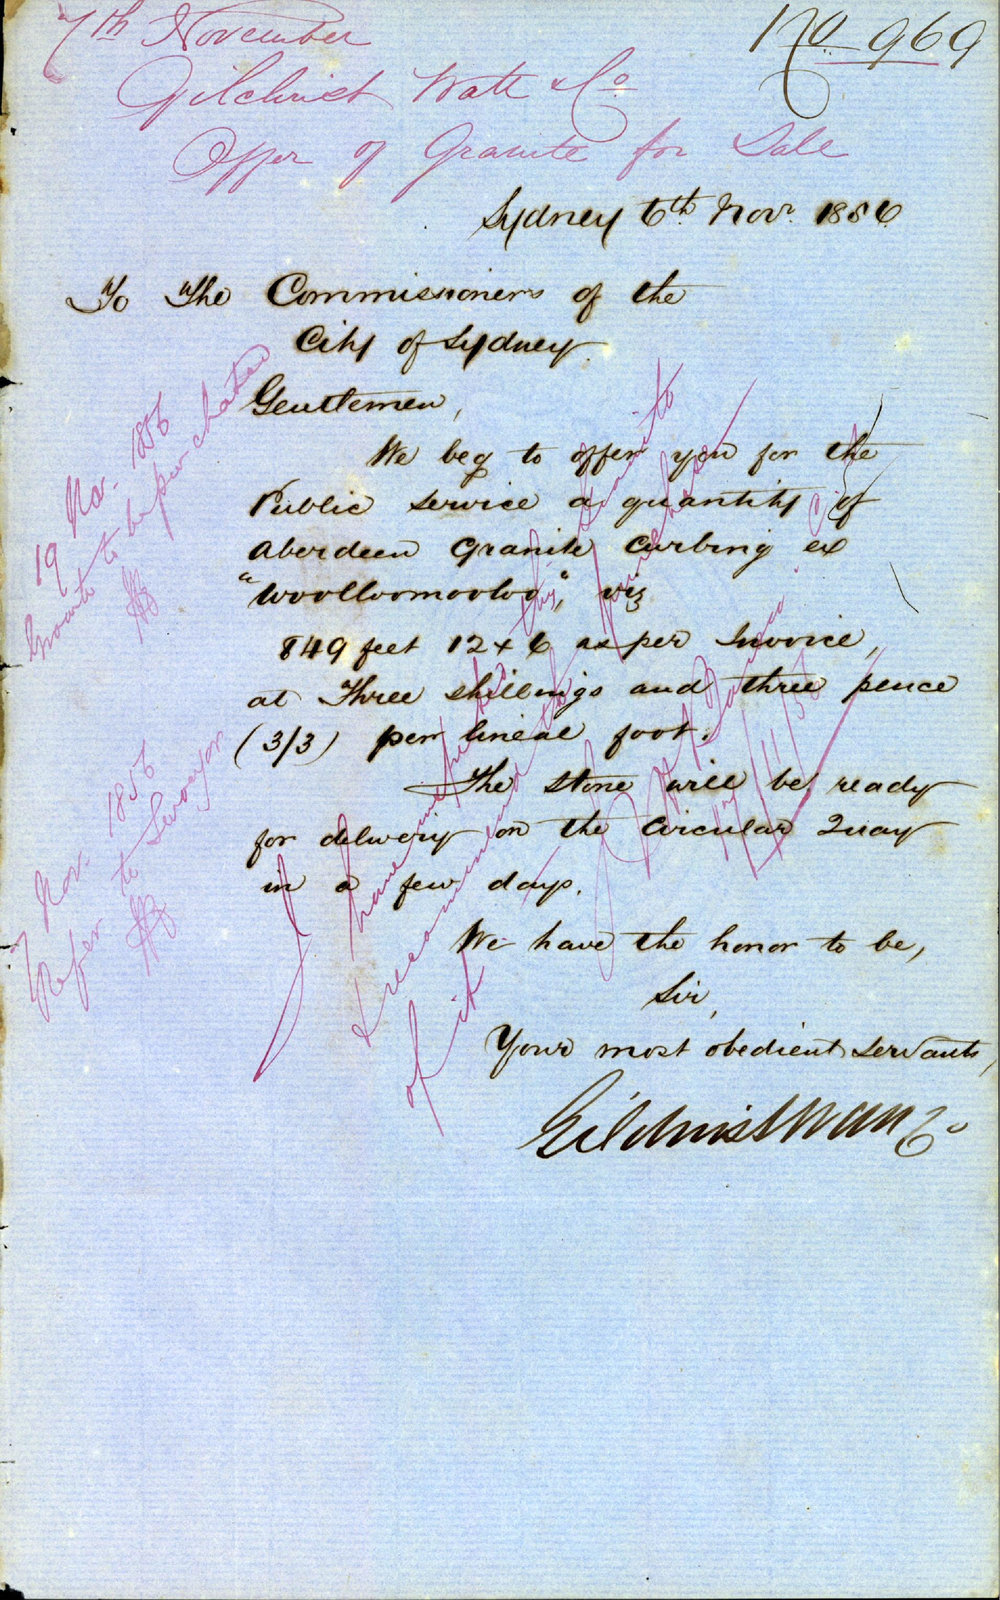 No 969
7th November
Gilchrist Watt & Co
Offer of Granite for Sale
Sydney 6th Novr. 1856
To The Commissioners of the
City of Sydney.
Gentlemen,
We beg to offer you for the
Public Service a quantity of
Aberdeen Granite Curbing ex
"Woolloomooloo", viz
849 feet 12 x 6 as per Invoice,
at Three shillings and three pence
(3/3) per lineal foot.
The stone will be ready
for delivery on the Circular Quay
in a few days.
We have the honor to be,
Sir,
Your most obedient servants,
Gilchrist Watt & Co
7 Nov. 1856
Refer to Surveyor
19 Nov. 1856
Granite to be purchased
I have inspected this Granite
& recommend the purchase
of it